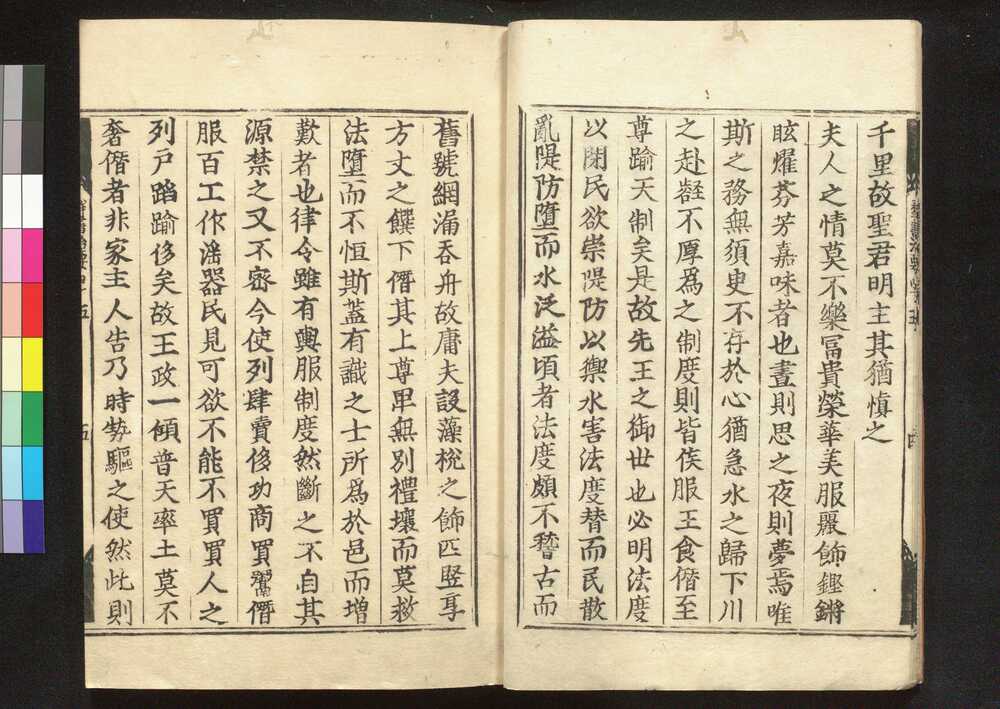 千里故聖君明主其猶慎之
夫人之情莫不樂冨貴榮華美服麗飾鏗鏘
眩燿芬芳嘉味者也晝則思之夜則夢焉唯
斯之務無須臾不存於心猶急水之歸下川
之赴壑不厚爲之制度則皆侯服王食僭至
尊踰天制矣是故先王之御世也必明法度
以閉民欲崇隄防以禦水害法度替而民散
亂隄防墮而水泛溢頃者法度頗不稽古而
舊號網漏吞舟故庸夫設藻梲之飾匹竪享
方丈之饌下僭其上尊卑無別禮壞而莫救
法墮而不恒斯蓋有識之士所爲於邑而增
歎者也律令雖有輿服制度然斷之不自其
源禁之又不密今使列肆賣侈功商買鬻僭
服百工作淫器民見可欲不能不買買人之
列戶蹈踰侈矣故王政一傾普天率土莫不
奢僭者非家主人告乃時勢驅之使然此則
五